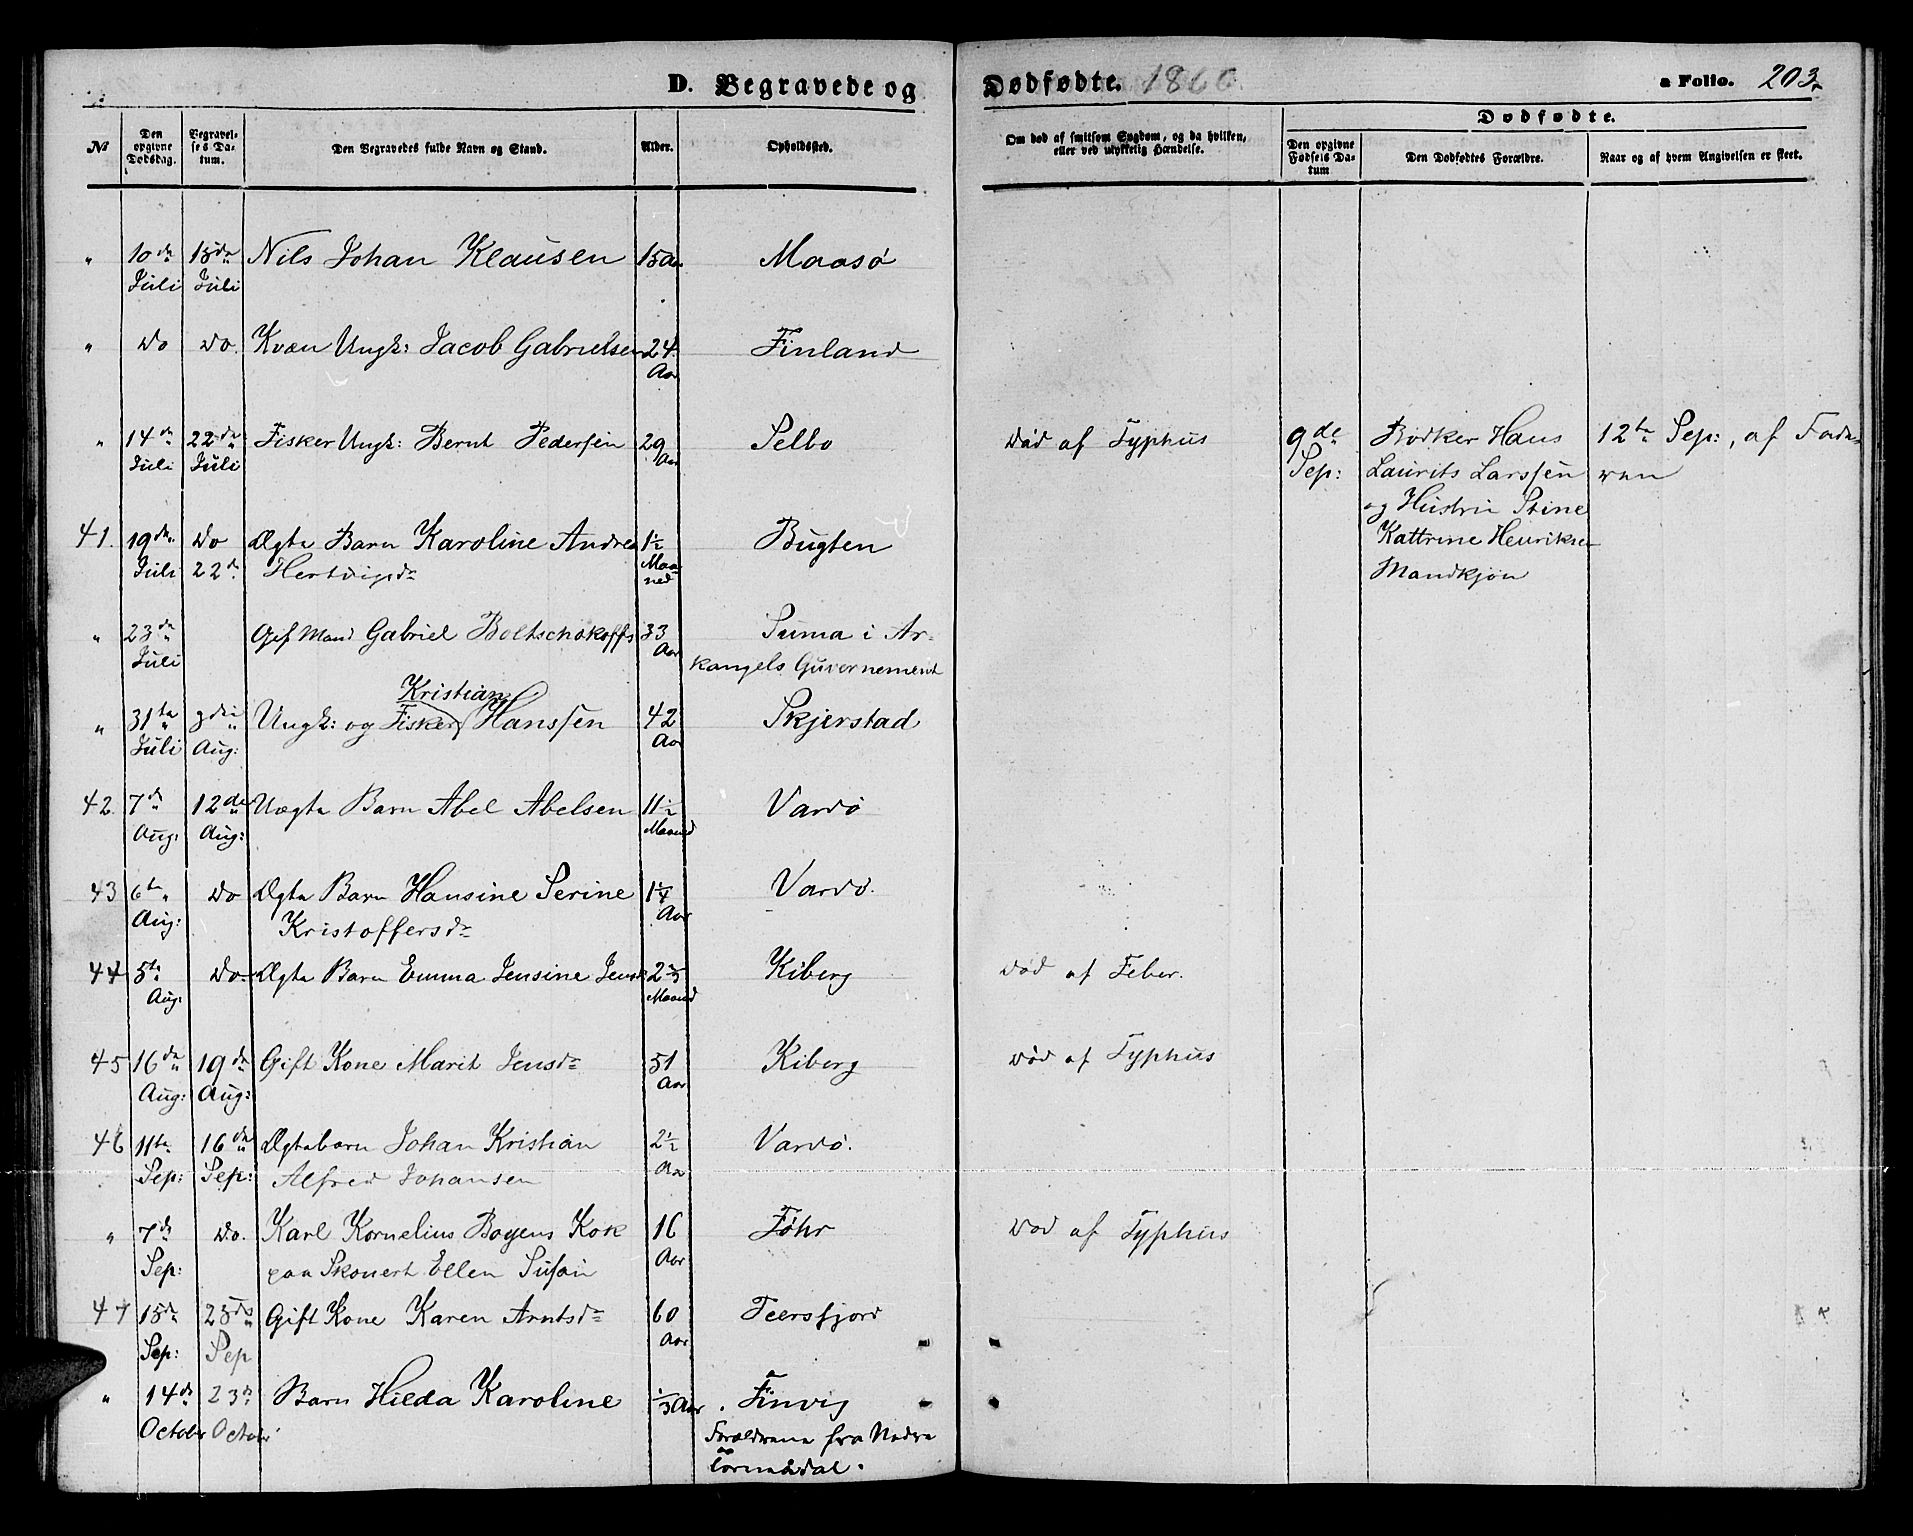 D. Begravede og Dødfødte. 1860. a Folio. 203.
No
Den opgivne Dødsdag.
Begravelses Datum.
Den Begravedes fulde Navn og Stand.
Alder.
Opholdssted.
Om død af smitsom Sygdom, og da hvilken, eller ved ulykkelig Hændelse.
Dødfødte.
Den opgivne Fødsels Datum
Den Dødfødtes Forældre.
Naar og af hvem Angivelsen er skeet.
" 10de 15de Nils Johan Klausen 15 Aar Maasø
Juli Juli
" do do. Kvæn Ungk: Jacob Gabrielsen 24 Finland
Aar
" 14de 22de Fisker Ungk: Bernt Pedersen 29 Selbo Død af Typhus 9de Bødker Hans 12te Sep:, af Fade-
Juli Juli Aar Sep: Laurits Larssen ren
og Hustru Stine
Kattrine Henriksen
Mandkjøn
41. 19de do Ægte Barn Karoline Andrea 1½ Bugten
Juli 22de Hertvigsdr Maaned
" 23de Gift Mand Gabriel Boltschakoffs 33 Suma i Ar-
Juli Aar kangels Guvernement
Kristian
" 31te 3die Ungk: og Fisker Hanssen 42 Skjerstad
Juli Aug: Aar
42. 7de 12de Uægte Barn Abel Abelsen 11½ Vardø
Aug: Aug: Maaned
43 6te do Ægte Barn Hansine Serine 1¼ Vardø.
Aug: Kristoffersdr Aar
44 5te do Ægte Barn Emma Jensine Jens 2 Kiberg Død af Feber.
Aug: Maaned
45 16de 19de Gift Kone Marit Jensdr 51 Kiberg Død af Typhus
Aug: Aug: Aar
46 11te 16de Ægtebarn Johan Kristian 2½ Vardø.
Sep: Sep: Alfred Johansen Aar
" 7de do. Karl Kornelius Boyens Kok 16 Føhr Død af Typhus
Sep: paa Skonert Ellen Susan Aar
47 15de 23de Gift Kone Karen Arntsdr 60 Leersfjord
Sep: Sep Aar
" 14de 23de Barn Hilda Karoline ⅓ Aar Finvig
October October Forældrene fra Nedre
Tornedal.